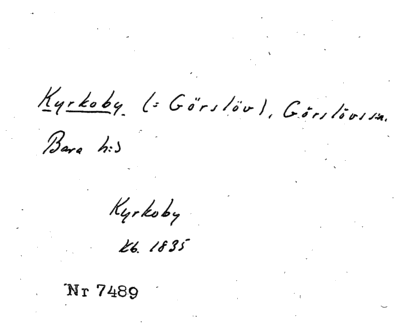 Kyrkoby. (= Görslöv), Görslövs sn.
Bara hd
Kyrkoby
Kb. 1835
Nr 7489